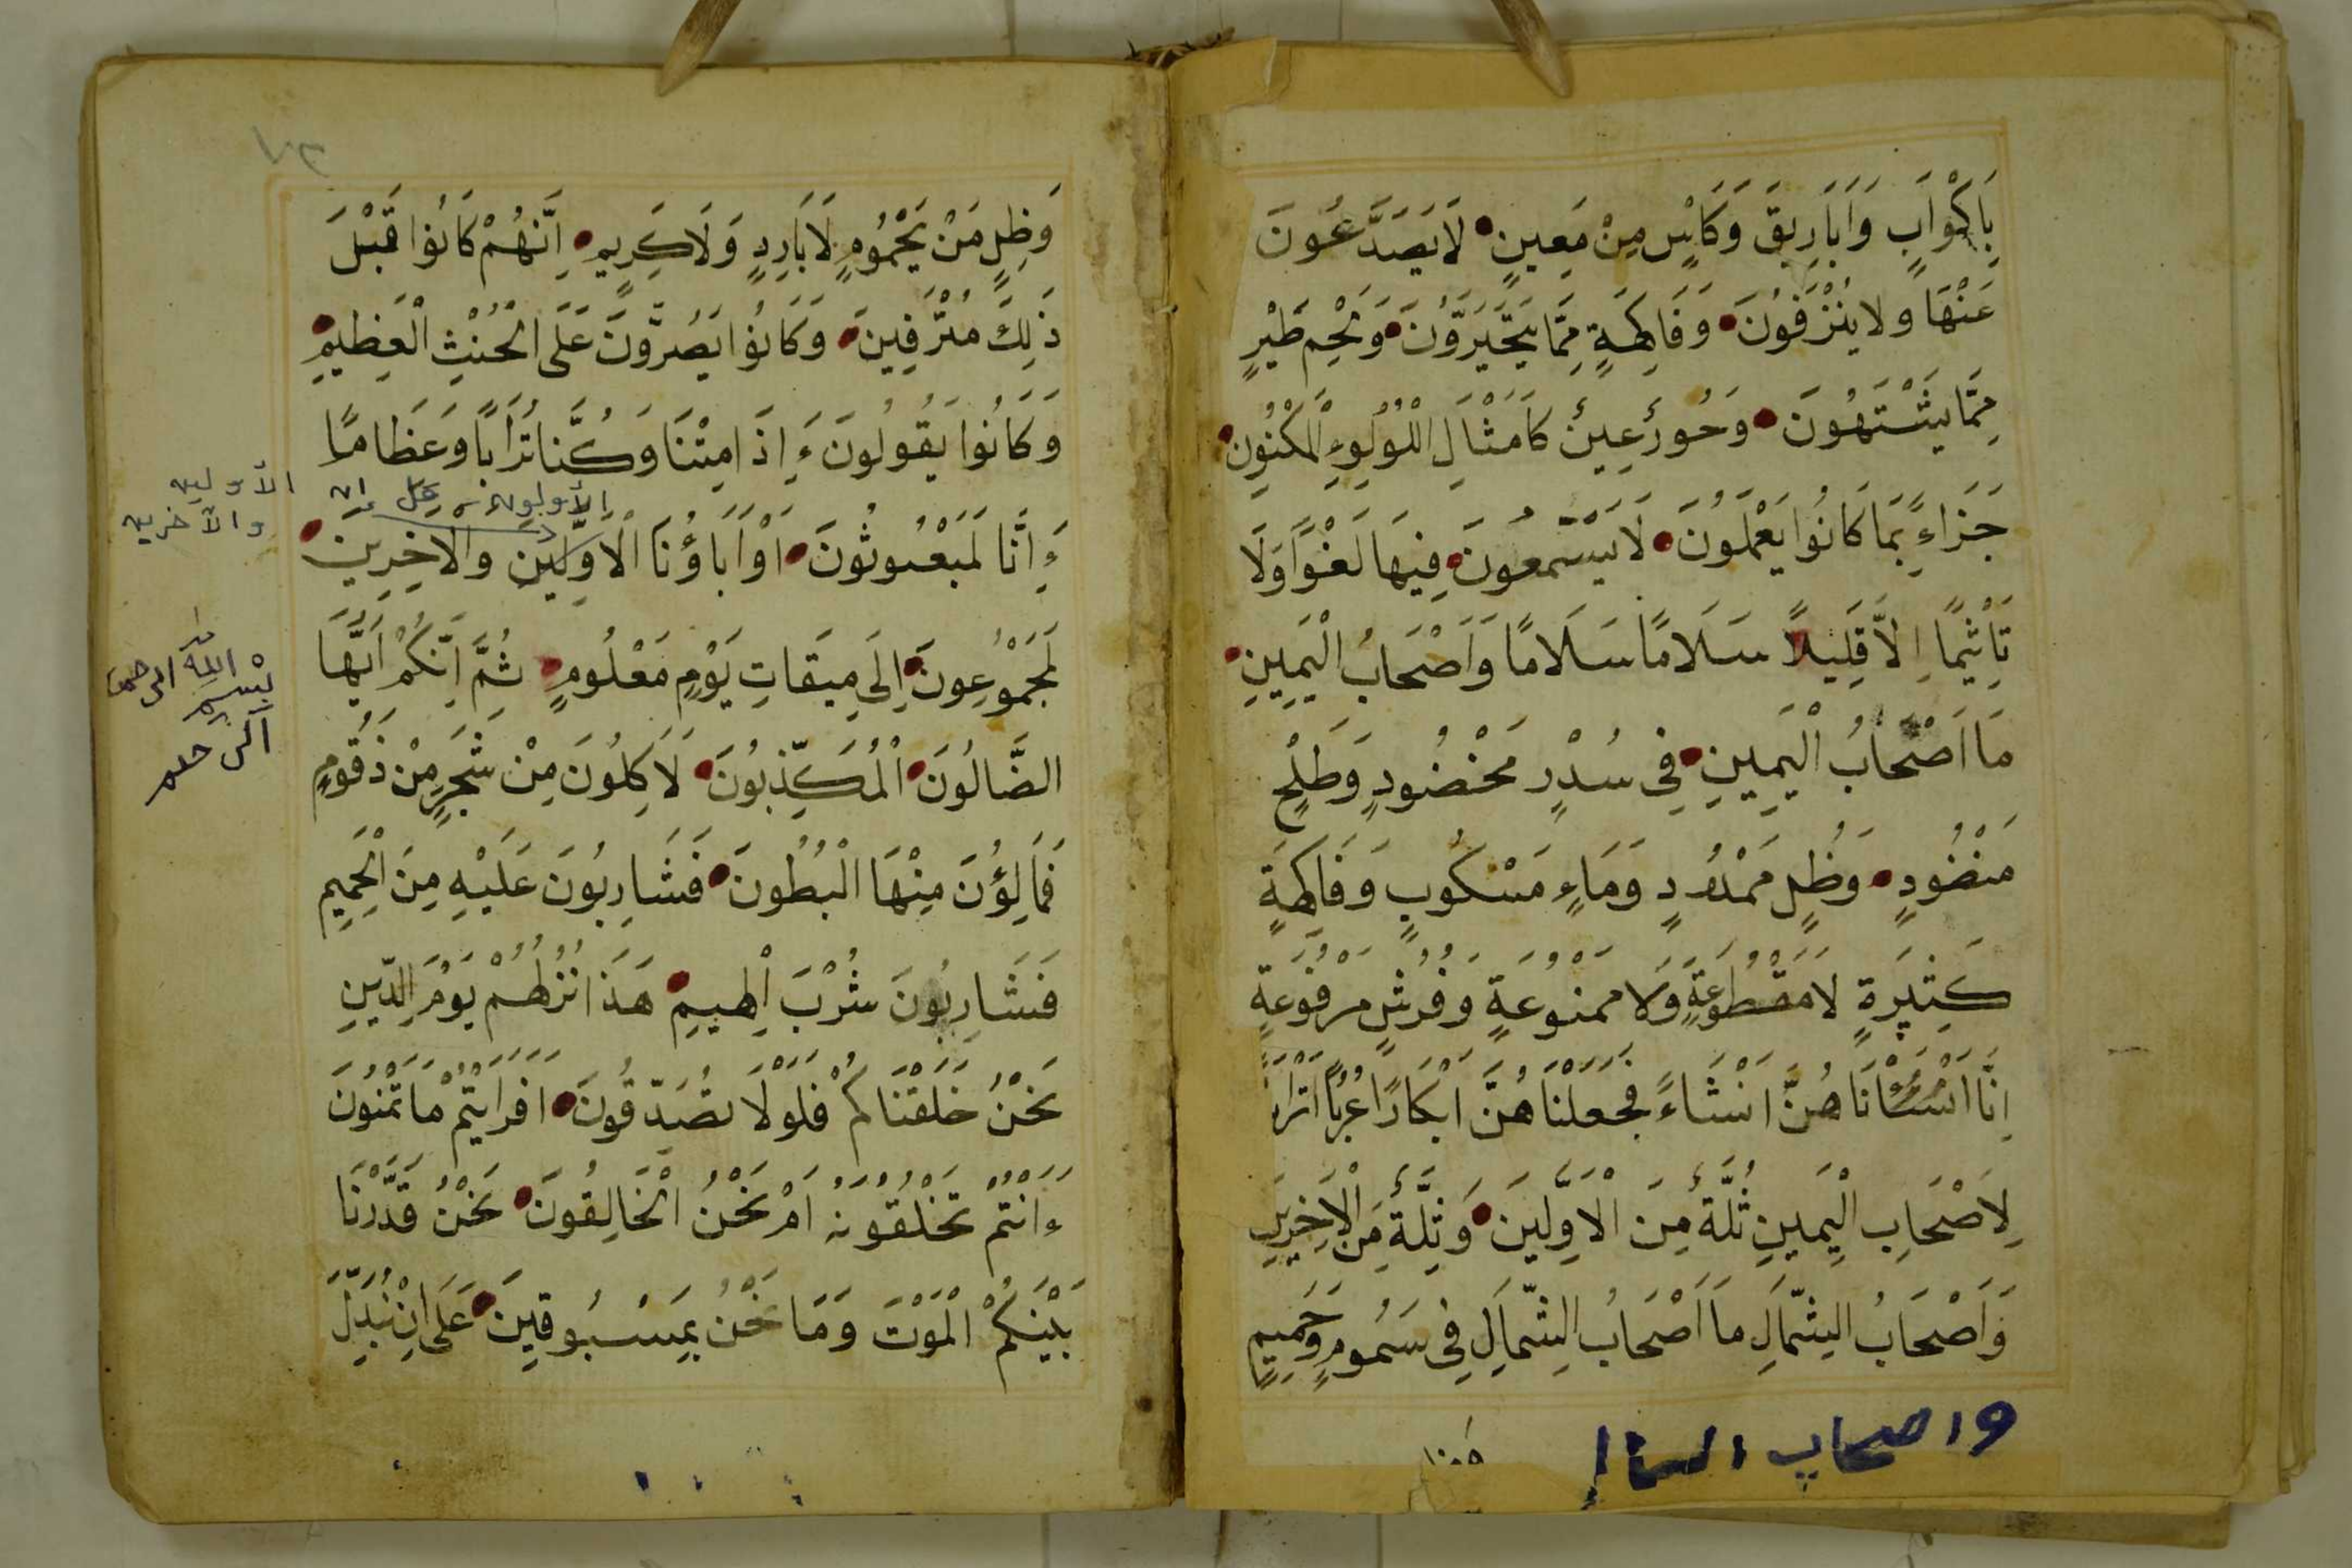 بِاَكْوَابٍ وَاَبَارِيقَ وَكَاْسٍ مِنْ مَعِينٍ لَا يَصَدَّعُونَ
عَنْهَا ولا يُنْزَفُونَ وَفَاكِهَةٍ مِمَّا يَتَخَيَّرَوُنَ وَلَحْمِ طَيْرٍ
مِمَّا يَشْتَهُونَ وَحُورٌ عِينٌ كَاَمْثَالِ اللْوُلُوءِ الْمَكْنُونِ
جَزَاءً بِمَا كَانُوا يَعْمَلُونَ لَا يَسْمَعُونَ فِيهَا لَغْوًا وَلَا
تَاْثِيمًا اِلَّا قَلِيلًا سَلَامًا سَلَامًا وَاَصْحَابُ الْيَمِينِ
مَا اَصْحَابُ الْيَمِينِ فِى سُدْرٍ مَخْضُودٍ وَطَلْحٍ
مَنْضُودٍ وَظُلٍ مَمْدُودٍ وَمَاءٍ مَسْكُوبٍ وَفَاكِهَةٍ
كَثِيرَةٍ لَا مَقْطُوعَةٍ وَلَا مَمْنُوعَةٍ وَفُرُشٍ مَرْفُوعَةٍ
اِنَّا اَنْشَئْانَا هُنَّ اِنْشَاءً فَجَعَلْنَا هُنَّ اَبْكَارًا عُرُبًا اَتْرَابًا
لِاَصْحَابِ الْيَمينِ ثُلَّةٌ مِنَ الْاَوَّلِينَ وَثِلَّةٌ مِنَ الْاَخِرِينَ
وَاَصْحَابُ الشِّمَالِ مَا اَصْحَابُ الشِّمَالِ فِى سَمُومٍ وَحَمِيمٍ
واصحاب الشمال
وَظِلٍ مَنْ يَحْمُومٍ لَا بَارِدٍ وَلَا كَرِيمٍ اِنَّهُمْ كَانُوا قَبْلَ
ذَلِكَ مُتْرَفِينَ وَكَانُوا يَصُرُّونَ عَلَى الْحُنْثِ الْعَظِيمِ
وَكَانُوا يَقُولُونَ ءَاِذَا مِتْنَا وَكُنَّا تُرَابًا وَعَظَامًا
الأولون قل إن
ءَاِنَّا لَمَبْعُوثُونَ اَوْ اَبَاؤُنَا الْاَوَّلِينَ وَالْاَخِرِينَ
الأولين
والآخرين
لَمَجْمُوعُونَ اِلَى مِيقَاتِ يَوْمٍ مَعْلُومٍ ثُمَّ اِنَّكُمْ اَيُّهَا
بسم الله الرحمن
الرحيم
الضَّالُونَ الْمُكَذِّبُونَ لَاَكِلُونَ مِنْ شَجَرٍ مِنْ ذَقُومٍ
فَمَالِؤُنَ مِنْهَا الْبُطُونَ فَشَارِبُونَ عَلَيْهِ مِنَ الْحَمِيمِ
فَشَارِبُونَ شُرْبَ الْهِيمِ هَذَا نُزُلُهُمْ يَوْمَ الدِّينِ
نَحْنُ خَلَقْنَاكُمْ فَلَوْلَا تُصَدِّقُونَ اَفَرَايْتُمْ مَا تُمْنُونَ
ءَاَنْتُمْ تَخْلُقُونَهُ اَمْ نَحْنُ الْخَالِقُونَ نَحْنُ قَدَّرْنَا
بَيْنَكُمْ الْمَوْتَ وَمَا نَحْنُ بِمَسْبُوقِينَ عَلَى اِنْ نُبَدِّلَ